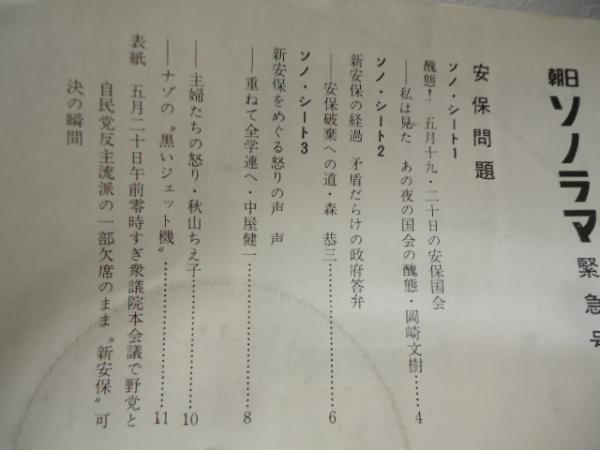 朝日ソノラマ 緊急号
安保問題
ソノ・シート1
醜態! 五月十九・二十日の安保国会
──私は見た あの夜の国会の醜態・岡崎文樹……4
ソノ・シート2
新安保の経過 矛盾だらけの政府答弁
──安保破棄への道・森 恭三……………6
ソノ・シート3
新安保をめぐる怒りの声 声
──重ねて全学連へ・中屋健一……………8
──主婦たちの怒り・秋山ちえ子……………10
──ナゾの〝黒いジェット機〟……………11
表紙 五月二十日午前零時すぎ衆議院本会議で野党と
自民党反主流派の一部欠席のまま〝新安保〟可
決の瞬間